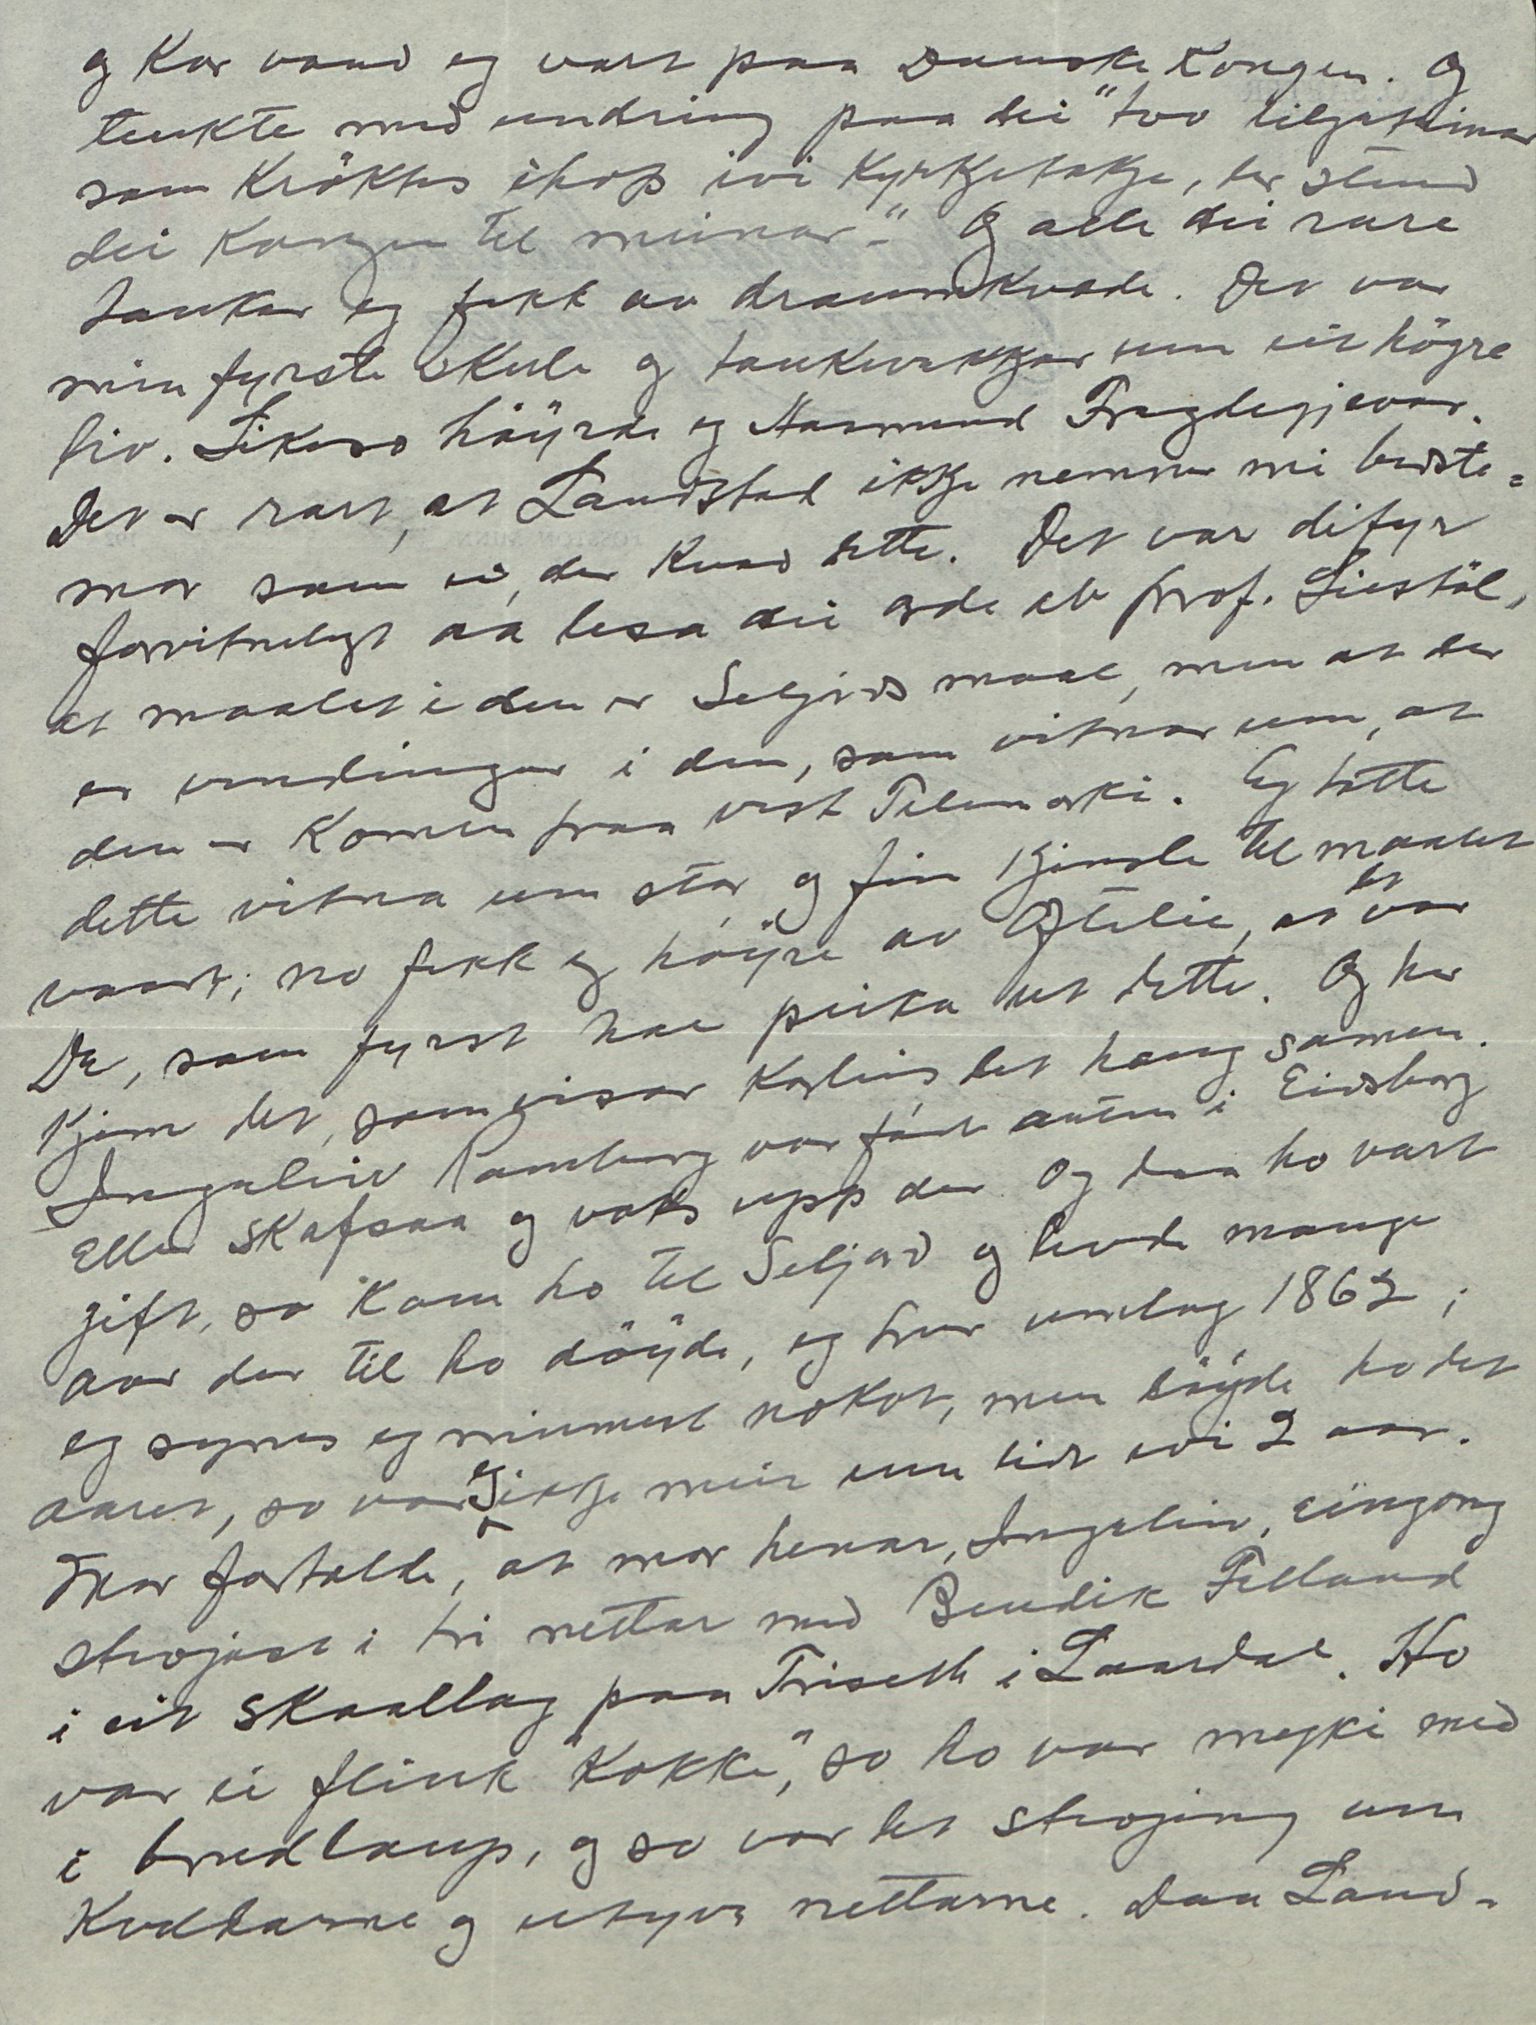 og Kor vand eg vart paa Danske Kongen. Og
tenkte med undring paa dei "tvo liljeteinar
som kröktes ihop ivi Kyrkjetakje, der stend
dei Kongen til meinar -" Og alle dei rare
tankar eg fekk av draumkvade. Det var
min fyrste skule og tankevekkjar um eit högre
liv. Likeso höyrde eg Aasmund Fregdegjevar.
Det er rart, at Landstad ikkje nemner mi beste=
mor som ei, der Kvad dette. Det var difyr
forvitneligt aa lesa dei orde ut prof. Liestöl,
at maalet i den er Seljords maal, men at der
er vendingar i den, som vitnar um, at
den er Komen fraa vest Telemarki. Eg totte
dette vitna um stor og fin Kjensle til maalet
vaart; no fekk eg höyre av Otelie, at det var
De, som fyrst hae peika ut dette. Og her
Kjem det, som visar Korleis det hang samen.
Ingeleiv Ramberg var född anten i Eidsborg
Eller Skafsaa og voks upp der. Og daa ho vart
gift, so Kom ho til Seljord og levde mange
aar der til ho döyde, eg trur umlag 1862;
eg synes eg minnest nokot, men döyde ho det
aaret, so var eg ikkje meir enn lidt ivi 2 aar.
Mor fortalde, at mor hennar, Ingeleiv, eingong
stevjast i tri nettar med Bendik Felland
i eit skaallag paa Triseth i Laardal. Ho
var ei flink "Kokke," so ho var myki med
i brudlaup, og so var det stevjing um
Kveldarne og utyvi nettarne. Daa Land-